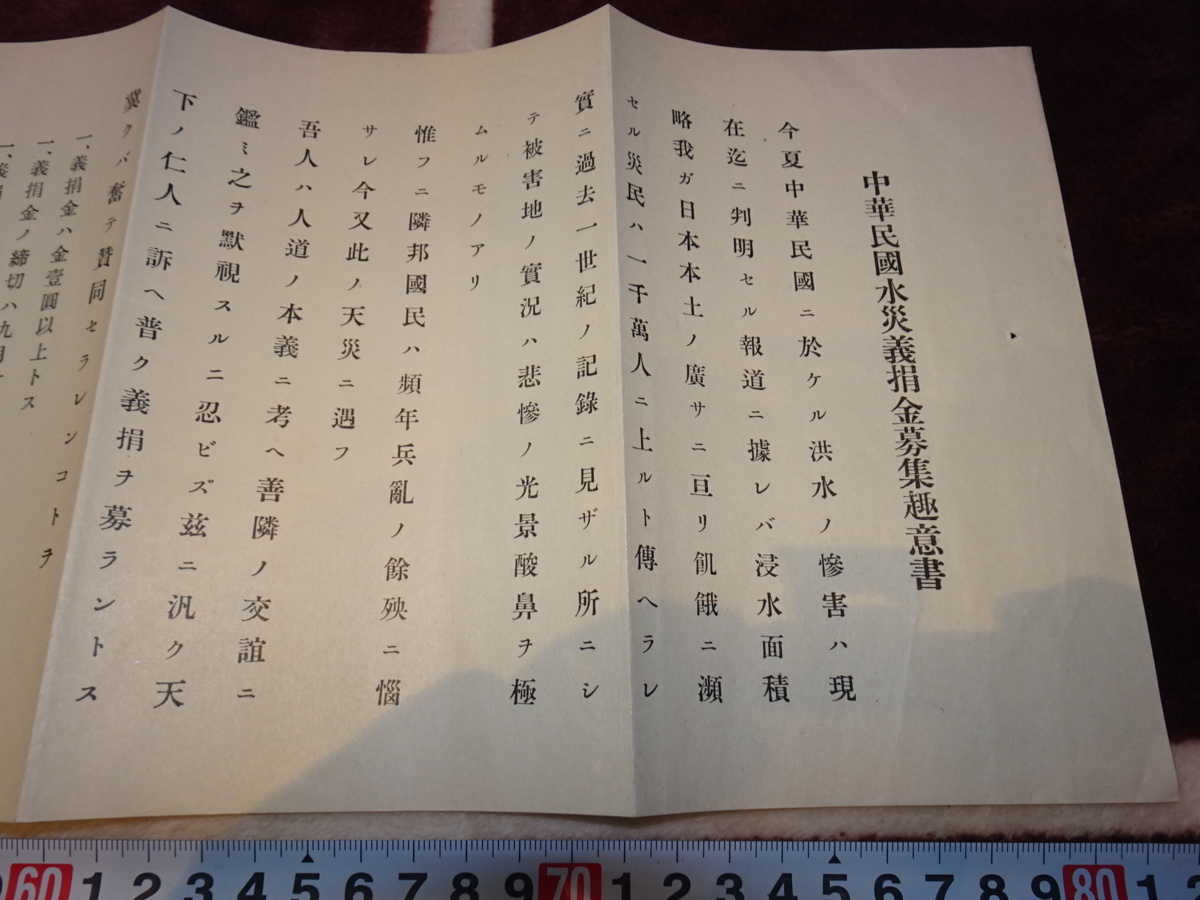 中華民國水災義捐金募集趣意書
今夏中華民國ニ於ケル洪水ノ慘害ハ現
在迄ニ判明セル報道ニ據レバ浸水面積
略我ガ日本本土ノ廣サニ亘リ飢餓ニ瀕
セル災民ハ一千萬人ニ上ルト傳ヘラレ
實ニ過去一世紀ノ記錄ニ見ザル所ニシ
テ被害地ノ實況ハ悲慘ノ光景酸鼻ヲ極
ムルモノアリ
惟フニ隣邦國民ハ頻年兵亂ノ餘殃ニ惱
サレ今又此ノ天災ニ遇フ
吾人ハ人道ノ本義ニ考ヘ善隣ノ交誼ニ
鑑ミ之ヲ默視スルニ忍ビズ茲ニ汎ク天
下ノ仁人ニ訴ヘ普ク義捐ヲ募ラントス
冀クバ奮テ贊同セラレンコトヲ
一、義捐金ハ金壹圓以上トス
一、義捐金ノ締切ハ九月
一、義捐
60 1 2 3 4 5 6 7 8 9 70 1 2 3 4 5 6 7 8 9 80 1